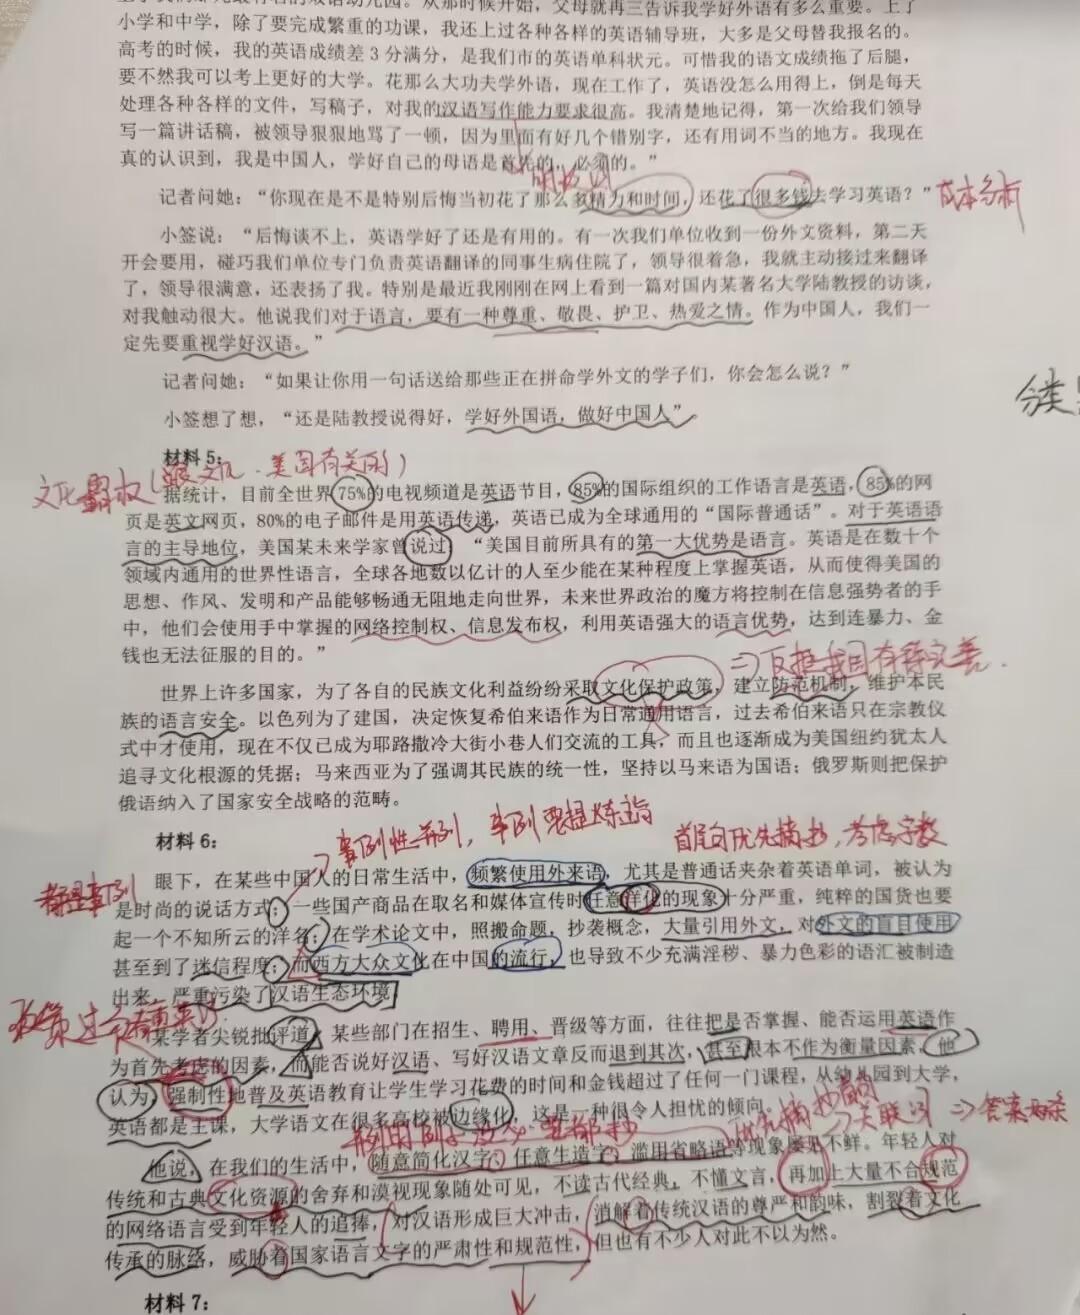 小学和中学，除了要完成繁重的功课，我还上过各种各样的英语辅导班，大多是父母替我报名的。
高考的时候，我的英语成绩差3分满分，是我们市的英语单科状元。可惜我的语文成绩拖了后腿，
要不然我可以考上更好的大学。花那么大功夫学外语，现在工作了，英语没怎么用得上，倒是每天
处理各种各样的文件，写稿子，对我的汉语写作能力要求很高。我清楚地记得，第一次给我们领导
写一篇讲话稿，被领导狠狠地骂了一顿，因为里面有好几个错别字，还有用词不当的地方。我现在
真的认识到，我是中国人，学好自己的母语是首先的、必须的。”
记者问她：“你现在是不是特别后悔当初花了那么多精力和时间，还花了很多钱去学习英语？”
成本分析
小签说：“后悔谈不上，英语学好了还是有用的。有一次我们单位收到一份外文资料，第二天
开会要用，碰巧我们单位专门负责英语翻译的同事生病住院了，领导很着急，我就主动接过来翻译
了，领导很满意，还表扬了我。特别是最近我刚刚在网上看到一篇对国内某著名大学陆教授的访谈，
对我触动很大。他说我们对于语言，要有一种尊重、敬畏、护卫、热爱之情。作为中国人，我们一
定先要重视学好汉语。”
记者问她：“如果让你用一句话送给那些正在拼命学外文的学子们，你会怎么说？”
分类
小签想了想，“还是陆教授说得好，学好外国语，做好中国人”
材料5：
文化霸权（ 美国有关的）
据统计，目前全世界75%的电视频道是英语节目，85%的国际组织的工作语言是英语，85%的网
页是英文网页，80%的电子邮件是用英语传递，英语已成为全球通用的“国际普通话”。对于英语语
言的主导地位，美国某未来学家曾说过：“美国目前所具有的第一大优势是语言。英语是在数十个
领域内通用的世界性语言，全球各地数以亿计的人至少能在某种程度上掌握英语，从而使得美国的
思想、作风、发明和产品能够畅通无阻地走向世界，未来世界政治的魔方将控制在信息强势者的手
中，他们会使用手中掌握的网络控制权、信息发布权，利用英语强大的语言优势，达到连暴力、金
钱也无法征服的目的。”
反推我国有待完善
世界上许多国家，为了各自的民族文化利益纷纷采取文化保护政策，建立防范机制，维护本民
族的语言安全。以色列为了建国，决定恢复希伯来语作为日常通用语言，过去希伯来语只在宗教仪
式中才使用，现在不仅已成为耶路撒冷大街小巷人们交流的工具，而且也逐渐成为美国纽约犹太人
追寻文化根源的凭据；马来西亚为了强调其民族的统一性，坚持以马来语为国语；俄罗斯则把保护
俄语纳入了国家安全战略的范畴。
案例性并列，案例要提炼主旨
首尾句优先摘抄，考虑字数
材料6：
都是案例
眼下，在某些中国人的日常生活中，频繁使用外来语，尤其是普通话夹杂着英语单词，被认为
是时尚的说话方式；一些国产商品在取名和媒体宣传时任意洋化的现象十分严重，纯粹的国货也要
起一个不知所云的洋名；在学术论文中，照搬命题，抄袭概念，大量引用外文，对外文的盲目使用
甚至到了迷信程度；而西方大众文化在中国的流行，也导致不少充满淫秽、暴力色彩的语汇被制造
出来，严重污染了汉语生态环境。
某学者尖锐批评道，某些部门在招生、聘用、晋级等方面，往往把是否掌握、能否运用英语作
为首先考虑的因素，而能否说好汉语、写好汉语文章反而退到其次，甚至根本不作为衡量因素，他
认为，强制性地普及英语教育让学生学习花费的时间和金钱超过了任何一门课程，从幼儿园到大学，
英语都是主课，大学语文在很多高校被边缘化，这是一种很令人担忧的倾向。
他说，在我们的生活中，随意简化汉字、任意生造字、滥用省略语等现象屡见不鲜。年轻人对
传统和古典文化资源的舍弃和漠视现象随处可见，不读古代经典，不懂文言，再加上大量不合规范
的网络语言受到年轻人的追捧，对汉语形成巨大冲击，消解着传统汉语的尊严和韵味，割裂着文化
传承的脉络，威胁着国家语言文字的严肃性和规范性，但也有不少人对此不以为然。
材料7：